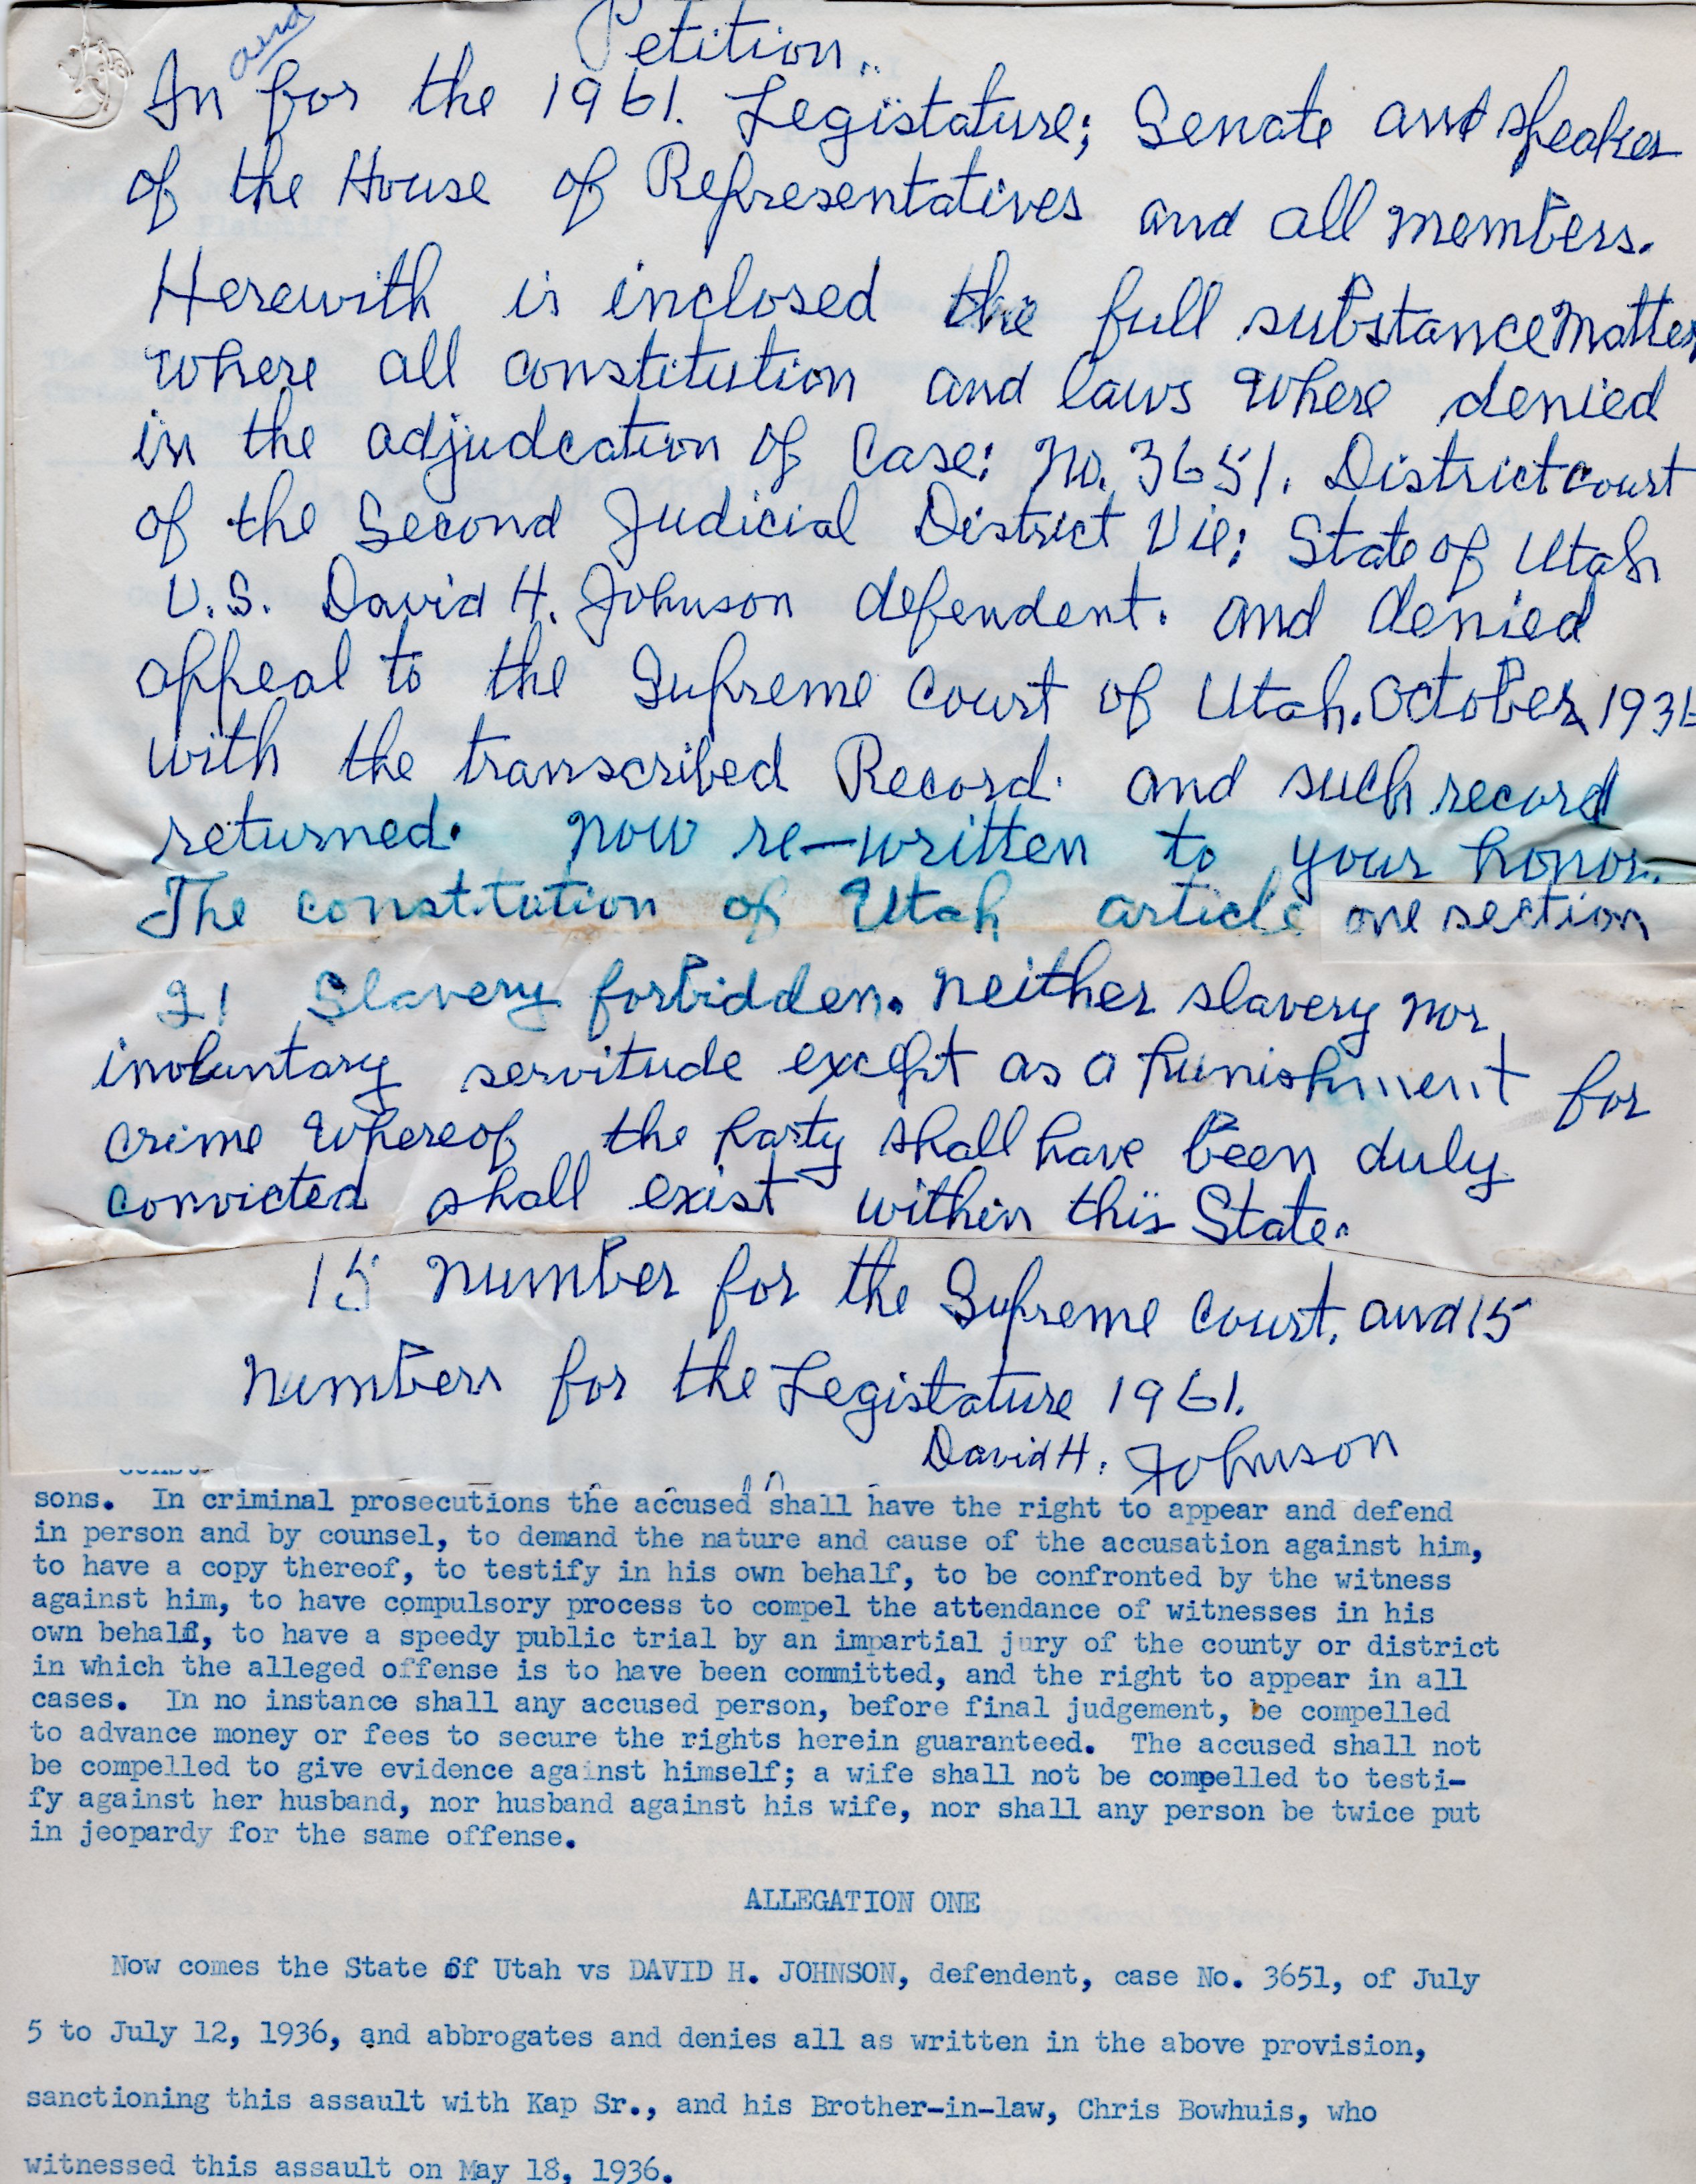 Petition.
and
In for the 1961. Legistature; Senate and speaker
of the House of Representatives and all members.
Herewith is inclosed the full substance matter
where all constitution and laws where denied
in the adjudcation of Case: No. 3651. District court
of the Second Judicial District Vie: State of Utah
V.S. David H. Johnson defendent. and denied
appeal to the Supreme Court of Utah. October 1936
with the transcribed Record. and such record
returned. now re-written to your honor.
The constitution of Utah article one section
21 Slavery forbidden. neither slavery nor
involuntary servitude except as a punishment for
crime whereof the party shall have been duly
convicted shall exist within this State.
15 number for the Supreme Court, and 15
numbers for the Legistature 1961.
David H. Johnson
sons. In criminal prosecutions the accused shall have the right to appear and defend
in person and by counsel, to demand the nature and cause of the accusation against him,
to have a copy thereof, to testify in his own behalf, to be confronted by the witness
against him, to have compulsory process to compel the attendance of witnesses in his
own behalf, to have a speedy public trial by an impartial jury of the county or district
in which the alleged offense is to have been committed, and the right to appear in all
cases. In no instance shall any accused person, before final judgement, be compelled
to advance money or fees to secure the rights herein guaranteed. The accused shall not
be compelled to give evidence against himself; a wife shall not be compelled to testi-
fy against her husband, nor husband against his wife, nor shall any person be twice put
in jeopardy for the same offense.
ALLEGATION ONE
Now comes the State of Utah vs DAVID H. JOHNSON, defendent, case No. 3651, of July
5 to July 12, 1936, and abbrogates and denies all as written in the above provision,
sanctioning this assault with Kap Sr., and his Brother-in-law, Chris Bowhuis, who
witnessed this assault on May 18, 1936.